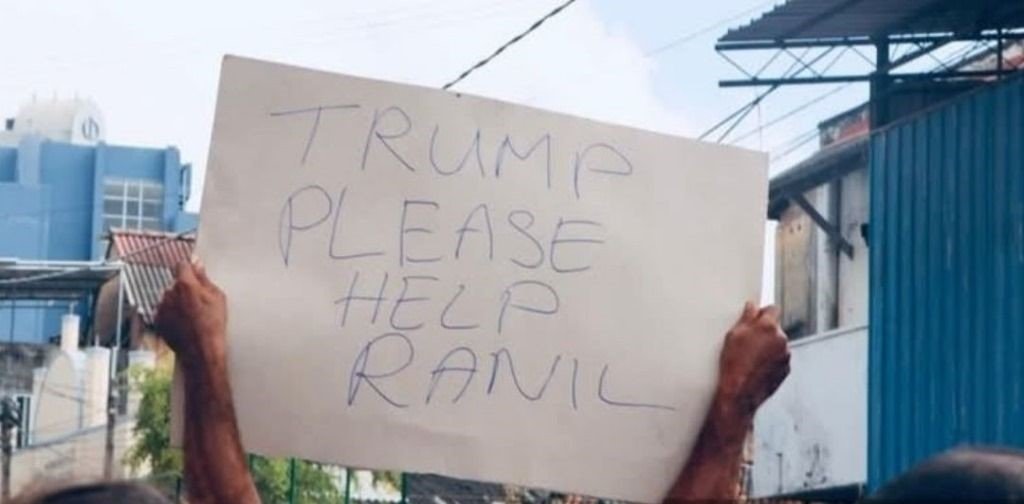 TRUMP
PLEASE
HELP
RANIL